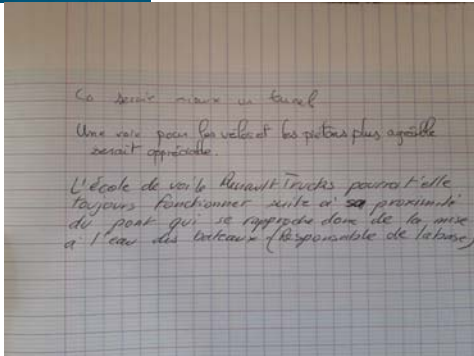 Ca serait mieux un tunel
Une voie pour les vélos et les piétons plus agréable
serait appréciable.
L'école de voile Renault Trucks pourra t'elle
toujours fonctionner suite a sa proximité
du pont qui se rapproche donc de la mise
a l'eau des bateaux (Responsable de la base)